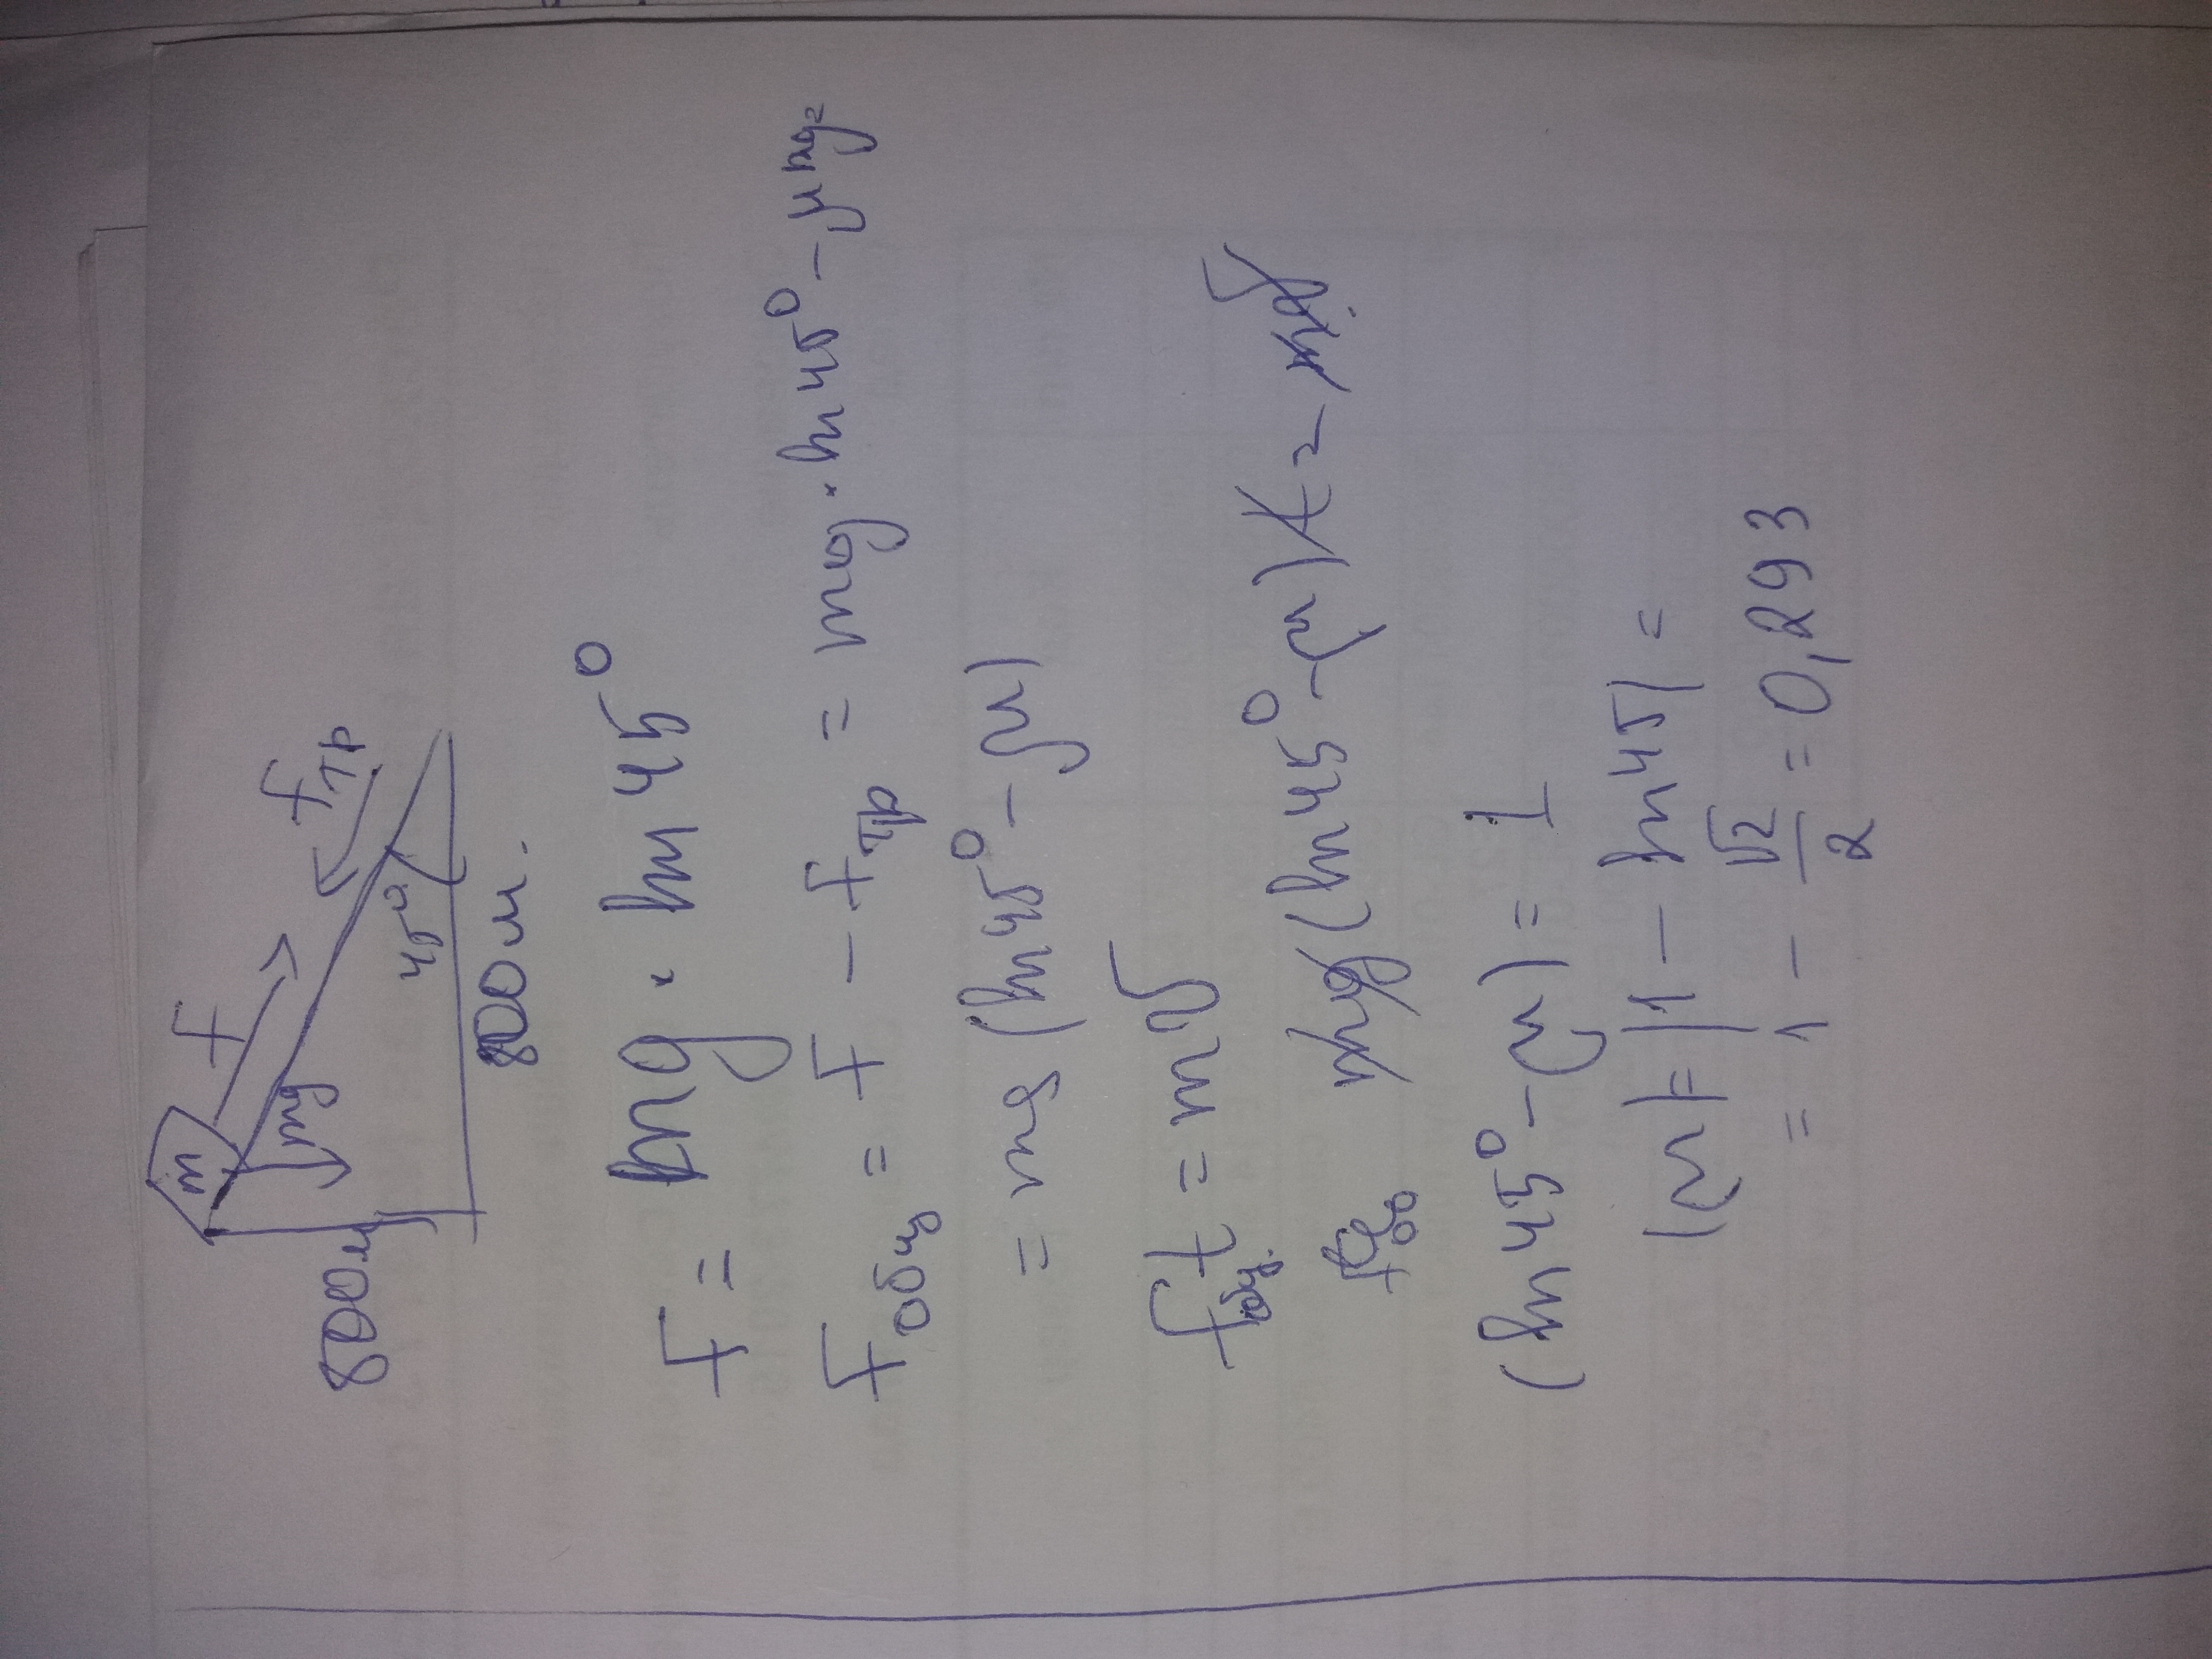 F
Fтр
m
mg
45°
800м
800м.
F = mg · sin 45°
Fобщ = F - Fтр = mg · sin 45° - μmg =
= mg (sin 45° - μ)
Fобщ. t = mv
mg (sin 45° - μ) t = mv
(sin 45° - μ) = 1
|μ| = |1 - sin 45| =
= 1 - √2/2 = 0,293